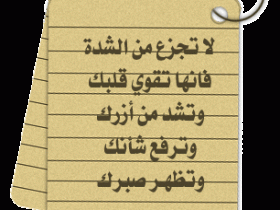 لا تجزع من الشدة
فانها تقوي قلبك
وتشد من أزرك
وترفع شأنك
وتظهر صبرك